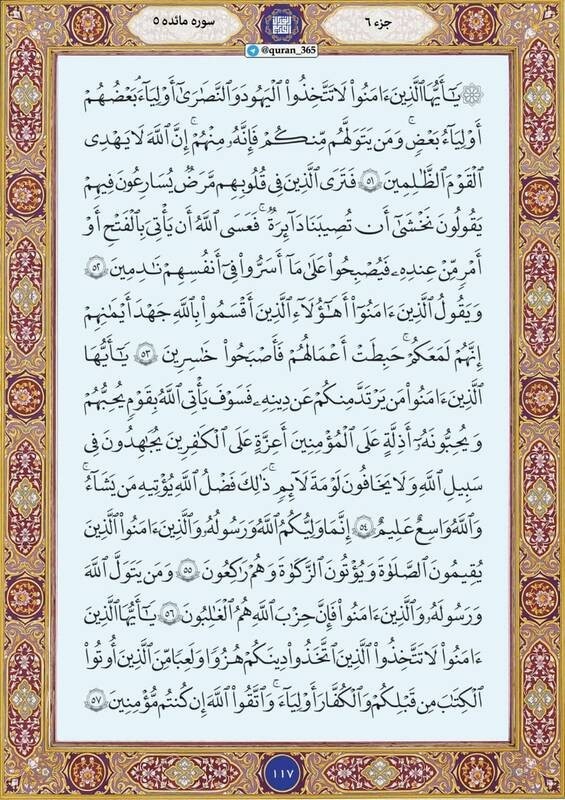 جزء ۶
سوره مائده ۵
@quran_365
۞ يَٰٓأَيُّهَا ٱلَّذِينَ ءَامَنُواْ لَا تَتَّخِذُواْ ٱلْيَهُودَ وَٱلنَّصَٰرَىٰٓ أَوْلِيَآءَۘ بَعْضُهُمْ
أَوْلِيَآءُ بَعْضٍۚ وَمَن يَتَوَلَّهُم مِّنكُمْ فَإِنَّهُۥ مِنْهُمْۗ إِنَّ ٱللَّهَ لَا يَهْدِى
ٱلْقَوْمَ ٱلظَّٰلِمِينَ ۵۱ فَتَرَى ٱلَّذِينَ فِى قُلُوبِهِم مَّرَضٌ يُسَٰرِعُونَ فِيهِمْ
يَقُولُونَ نَخْشَىٰٓ أَن تُصِيبَنَا دَآئِرَةٌۚ فَعَسَى ٱللَّهُ أَن يَأْتِىَ بِٱلْفَتْحِ أَوْ
أَمْرٍ مِّنْ عِندِهِۦ فَيُصْبِحُواْ عَلَىٰ مَآ أَسَرُّواْ فِىٓ أَنفُسِهِمْ نَٰدِمِينَ ۵۲
وَيَقُولُ ٱلَّذِينَ ءَامَنُوٓاْ أَهَٰٓؤُلَآءِ ٱلَّذِينَ أَقْسَمُواْ بِٱللَّهِ جَهْدَ أَيْمَٰنِهِمْ
إِنَّهُمْ لَمَعَكُمْۚ حَبِطَتْ أَعْمَٰلُهُمْ فَأَصْبَحُواْ خَٰسِرِينَ ۵۳ يَٰٓأَيُّهَا
ٱلَّذِينَ ءَامَنُواْ مَن يَرْتَدَّ مِنكُمْ عَن دِينِهِۦ فَسَوْفَ يَأْتِى ٱللَّهُ بِقَوْمٍ يُحِبُّهُمْ
وَيُحِبُّونَهُۥٓ أَذِلَّةٍ عَلَى ٱلْمُؤْمِنِينَ أَعِزَّةٍ عَلَى ٱلْكَٰفِرِينَ يُجَٰهِدُونَ فِى
سَبِيلِ ٱللَّهِ وَلَا يَخَافُونَ لَوْمَةَ لَآئِمٍۚ ذَٰلِكَ فَضْلُ ٱللَّهِ يُؤْتِيهِ مَن يَشَآءُۚ
وَٱللَّهُ وَٰسِعٌ عَلِيمٌ ۵۴ إِنَّمَا وَلِيُّكُمُ ٱللَّهُ وَرَسُولُهُۥ وَٱلَّذِينَ ءَامَنُواْ ٱلَّذِينَ
يُقِيمُونَ ٱلصَّلَوٰةَ وَيُؤْتُونَ ٱلزَّكَوٰةَ وَهُمْ رَٰكِعُونَ ۵۵ وَمَن يَتَوَلَّ ٱللَّهَ
وَرَسُولَهُۥ وَٱلَّذِينَ ءَامَنُواْ فَإِنَّ حِزْبَ ٱللَّهِ هُمُ ٱلْغَٰلِبُونَ ۵۶ يَٰٓأَيُّهَا ٱلَّذِينَ
ءَامَنُواْ لَا تَتَّخِذُواْ ٱلَّذِينَ ٱتَّخَذُواْ دِينَكُمْ هُزُوًا وَلَعِبًا مِّنَ ٱلَّذِينَ أُوتُواْ
ٱلْكِتَٰبَ مِن قَبْلِكُمْ وَٱلْكُفَّارَ أَوْلِيَآءَۚ وَٱتَّقُواْ ٱللَّهَ إِن كُنتُم مُّؤْمِنِينَ ۵۷
۱۱۷